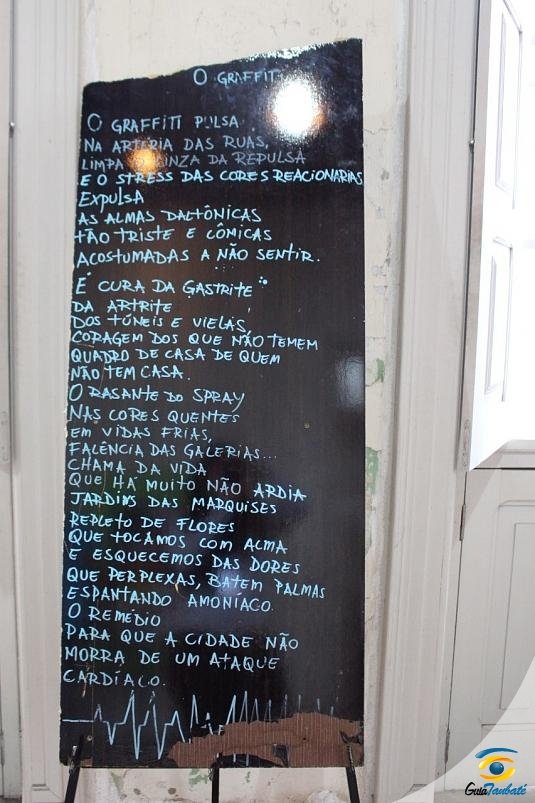 O GRAFFITI
O GRAFFITI PULSA
NA ARTÉRIA DAS RUAS,
LIMPA CINZA DA REPULSA
E O STRESS DAS CORES REACIONARIAS
EXPULSA
AS ALMAS DALTÔNICAS
TÃO TRISTE E CÔMICAS
ACOSTUMADAS A NÃO SENTIR.
É CURA DA GASTRITE
DA ARTRITE
DOS TÚNEIS E VIELAS,
CORAGEM DOS QUE NÃO TEMEM
QUADRO DE CASA DE QUEM
NÃO TEM CASA.
O RASANTE DO SPRAY
NAS CORES QUENTES
EM VIDAS FRIAS,
FALÊNCIA DAS GALERIAS...
CHAMA DA VIDA
QUE HÁ MUITO NÃO ARDIA
JARDINS DAS MARQUISES
REPLETO DE FLORES
QUE TOCAMOS COM ALMA
E ESQUECEMOS DAS DORES
QUE PERPLEXAS, BATEM PALMAS
ESPANTANDO AMONÍACO.
O REMÉDIO
PARA QUE A CIDADE NÃO
MORRA DE UM ATAQUE
CARDÍACO.
GuiaTaubaté